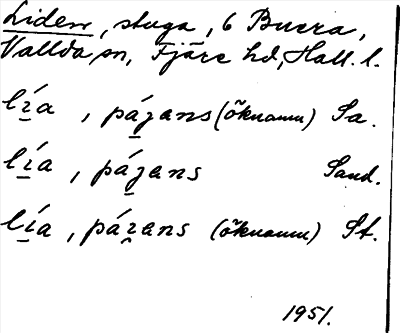 Liden, stuga, 6 Buera,
Vallda sn, Fjäre hd, Hall. l.
lí̱a , pá̱ʒans (öknamn) Sa.
lí̱a , pá̱ʒans Sand.
lí̱a , pá̱ʒans (öknamn) St.
1951.